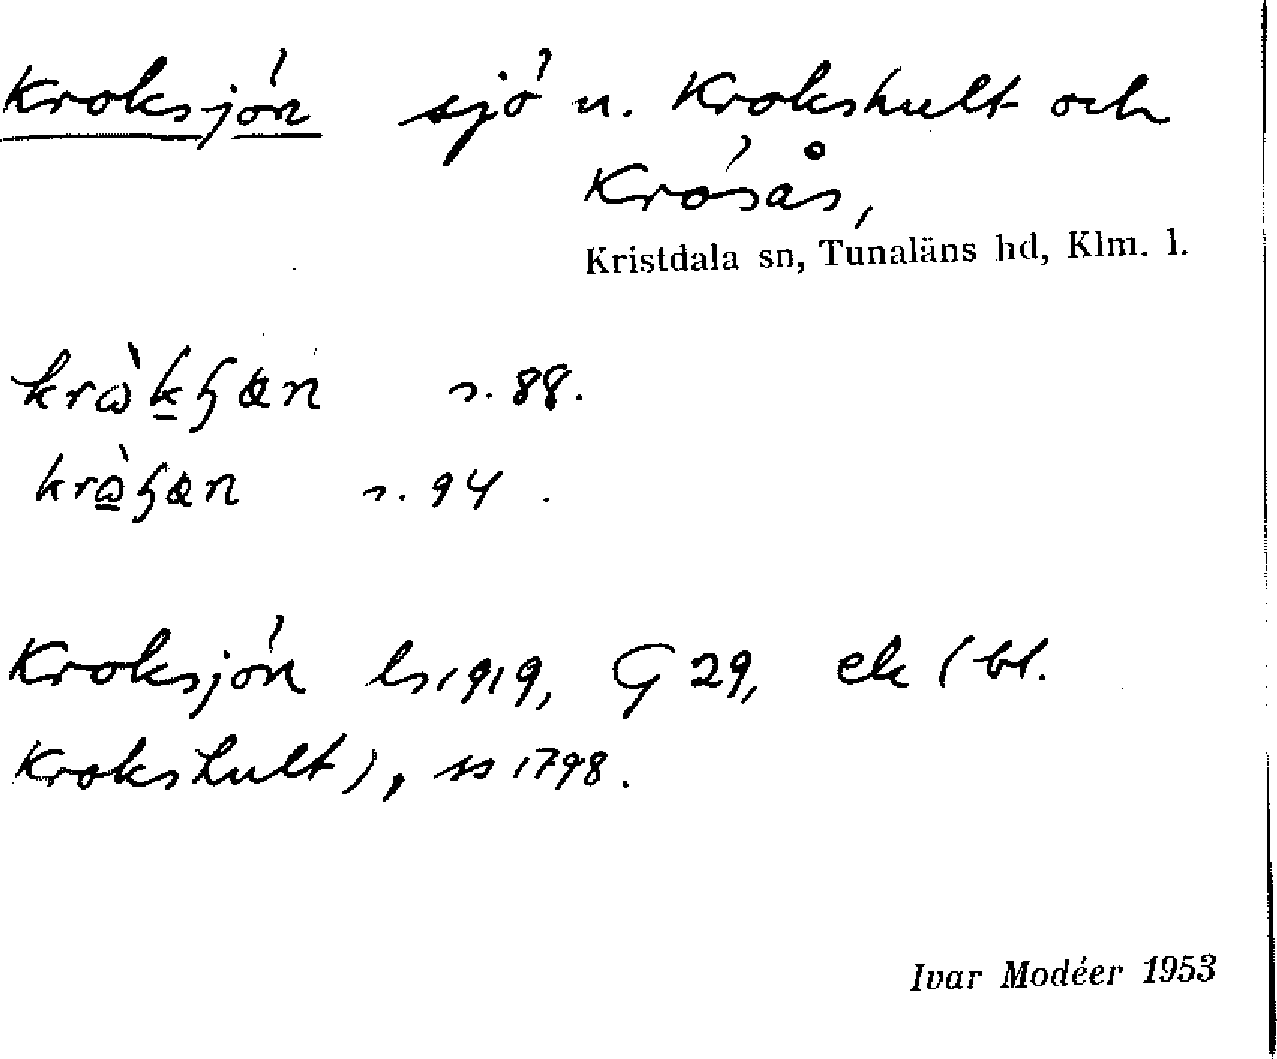 Kroksjön sjö n. Krokshult och
Krösås,
Kristdala sn, Tunaläns hd, Klm. l.
s. 88.
s. 94.
Kroksjön ls 1919, G 29, ek (bl.
Krokshult), ss 1798.
Ivar Modéer 1953